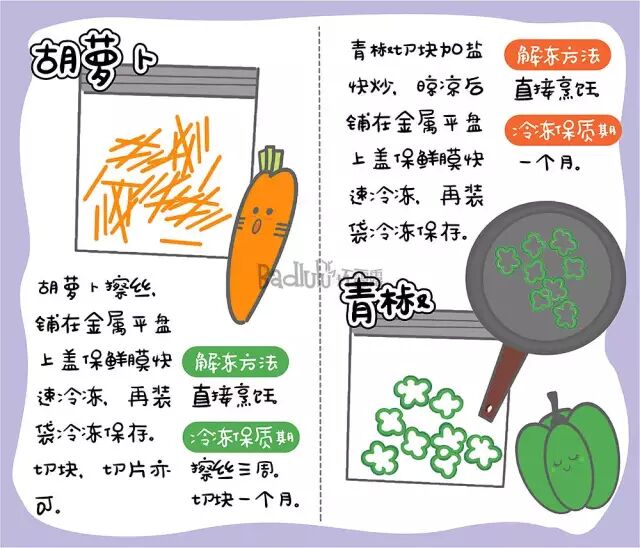 胡萝卜
胡萝卜擦丝,
铺在金属平盘
上盖保鲜膜快
速冷冻, 再装
袋冷冻保存。
切块, 切片亦
可。
解冻方法
直接烹饪
冷冻保质期
擦丝三周。
切块一个月。
青椒切块加盐
快炒, 晾凉后
铺在金属平盘
上盖保鲜膜快
速冷冻, 再装
袋冷冻保存。
解冻方法
直接烹饪
冷冻保质期
一个月。
青椒